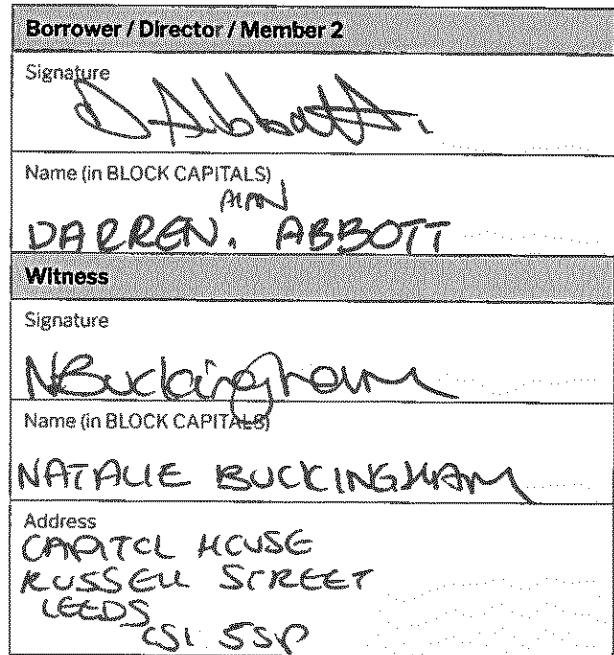 Borrower / Director / Member 2
Signature
D Abbott.
Name (in BLOCK CAPITALS)
ALAN
DARREN. ABBOTT
Witness
Signature
NBuckingham
Name (in BLOCK CAPITALS)
NATALIE BUCKINGHAM
Address
CAPITOL HOUSE
RUSSELL STREET
LEEDS
LS1 5SP